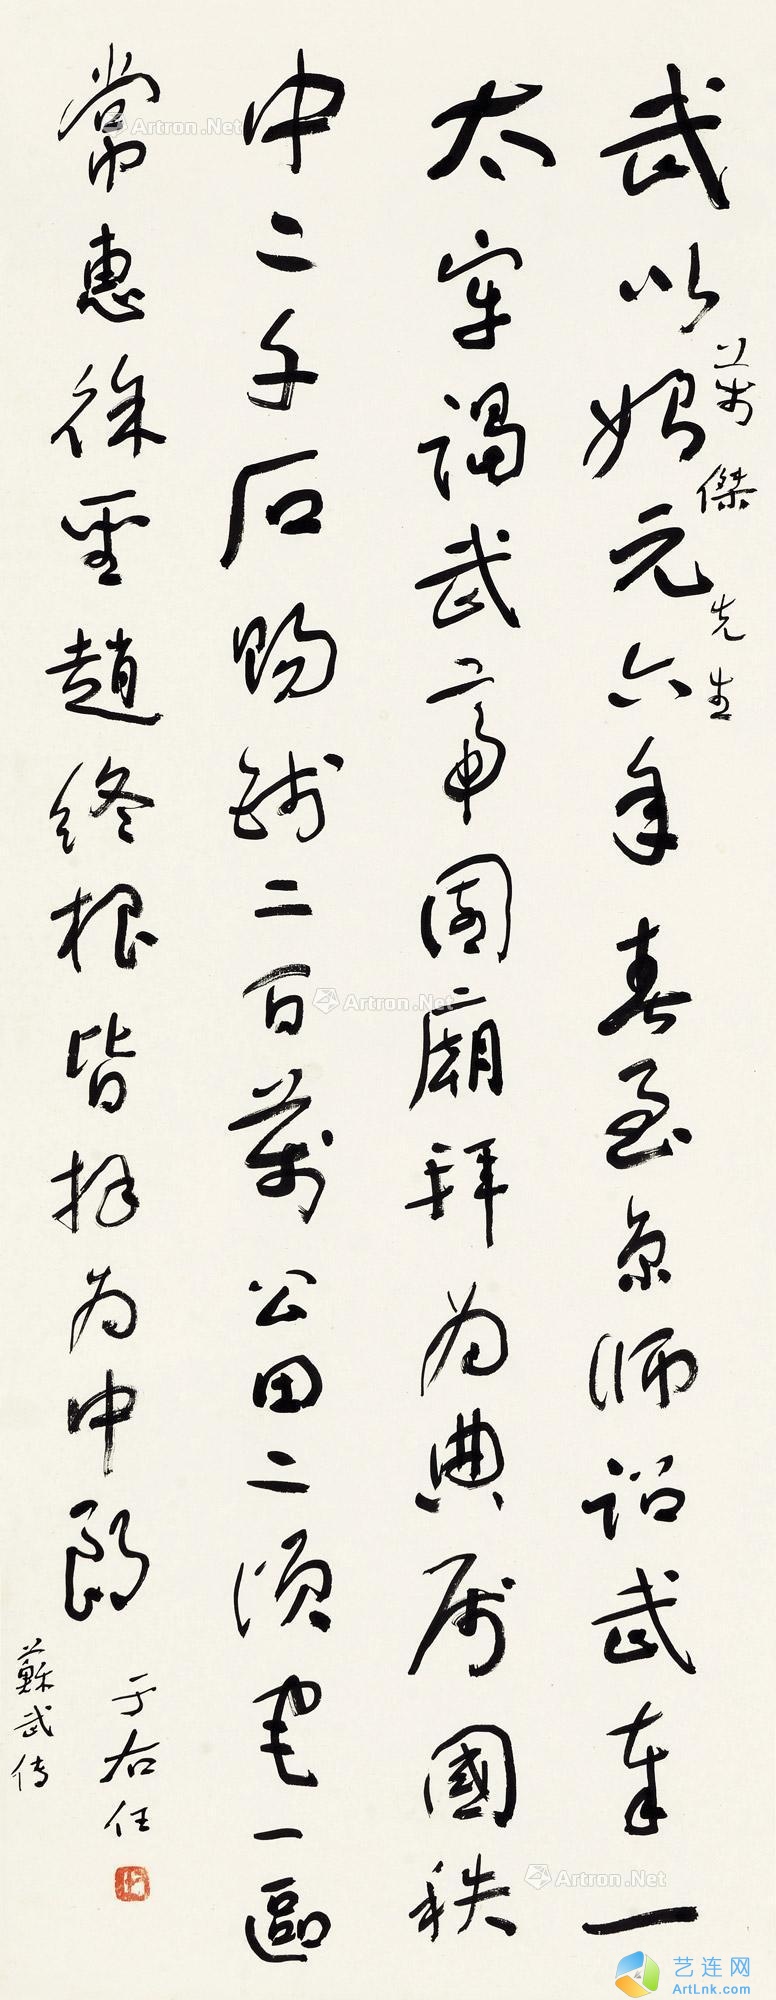 武以始元六年春至京師詔武奉一
萬傑先生
太牢謁武帝園廟拜為典屬國秩
中二千石賜錢二百萬公田二頃宅一區
常惠徐聖趙終根皆拜為中郎
于右任
蘇武傳
Artron.Net
Artron.Net
Artron.Net
艺连网
ArtLnk.com